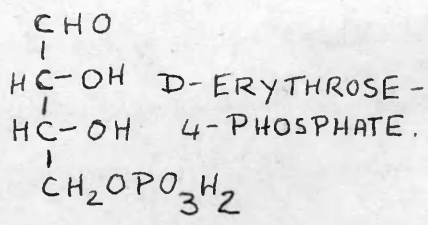 CHO
HC-OH D-ERYTHROSE-
HC-OH 4-PHOSPHATE.
CH₂OPO₃H₂